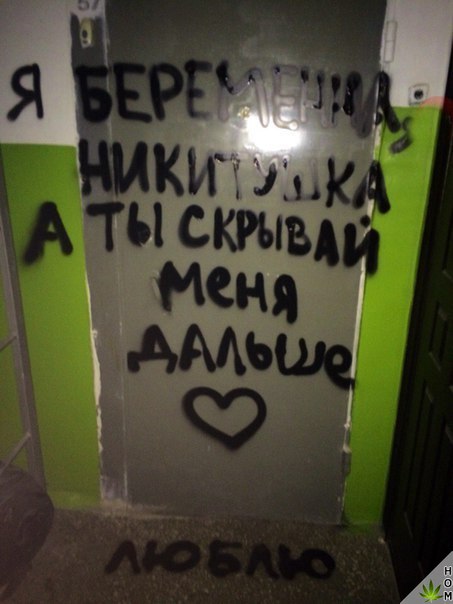 57
Я БЕРЕМЕННА,
НИКИТУШКА
А ТЫ СКРЫВАЙ
МЕНЯ
ДАЛЬШЕ
ЛЮБЛЮ
НОМ